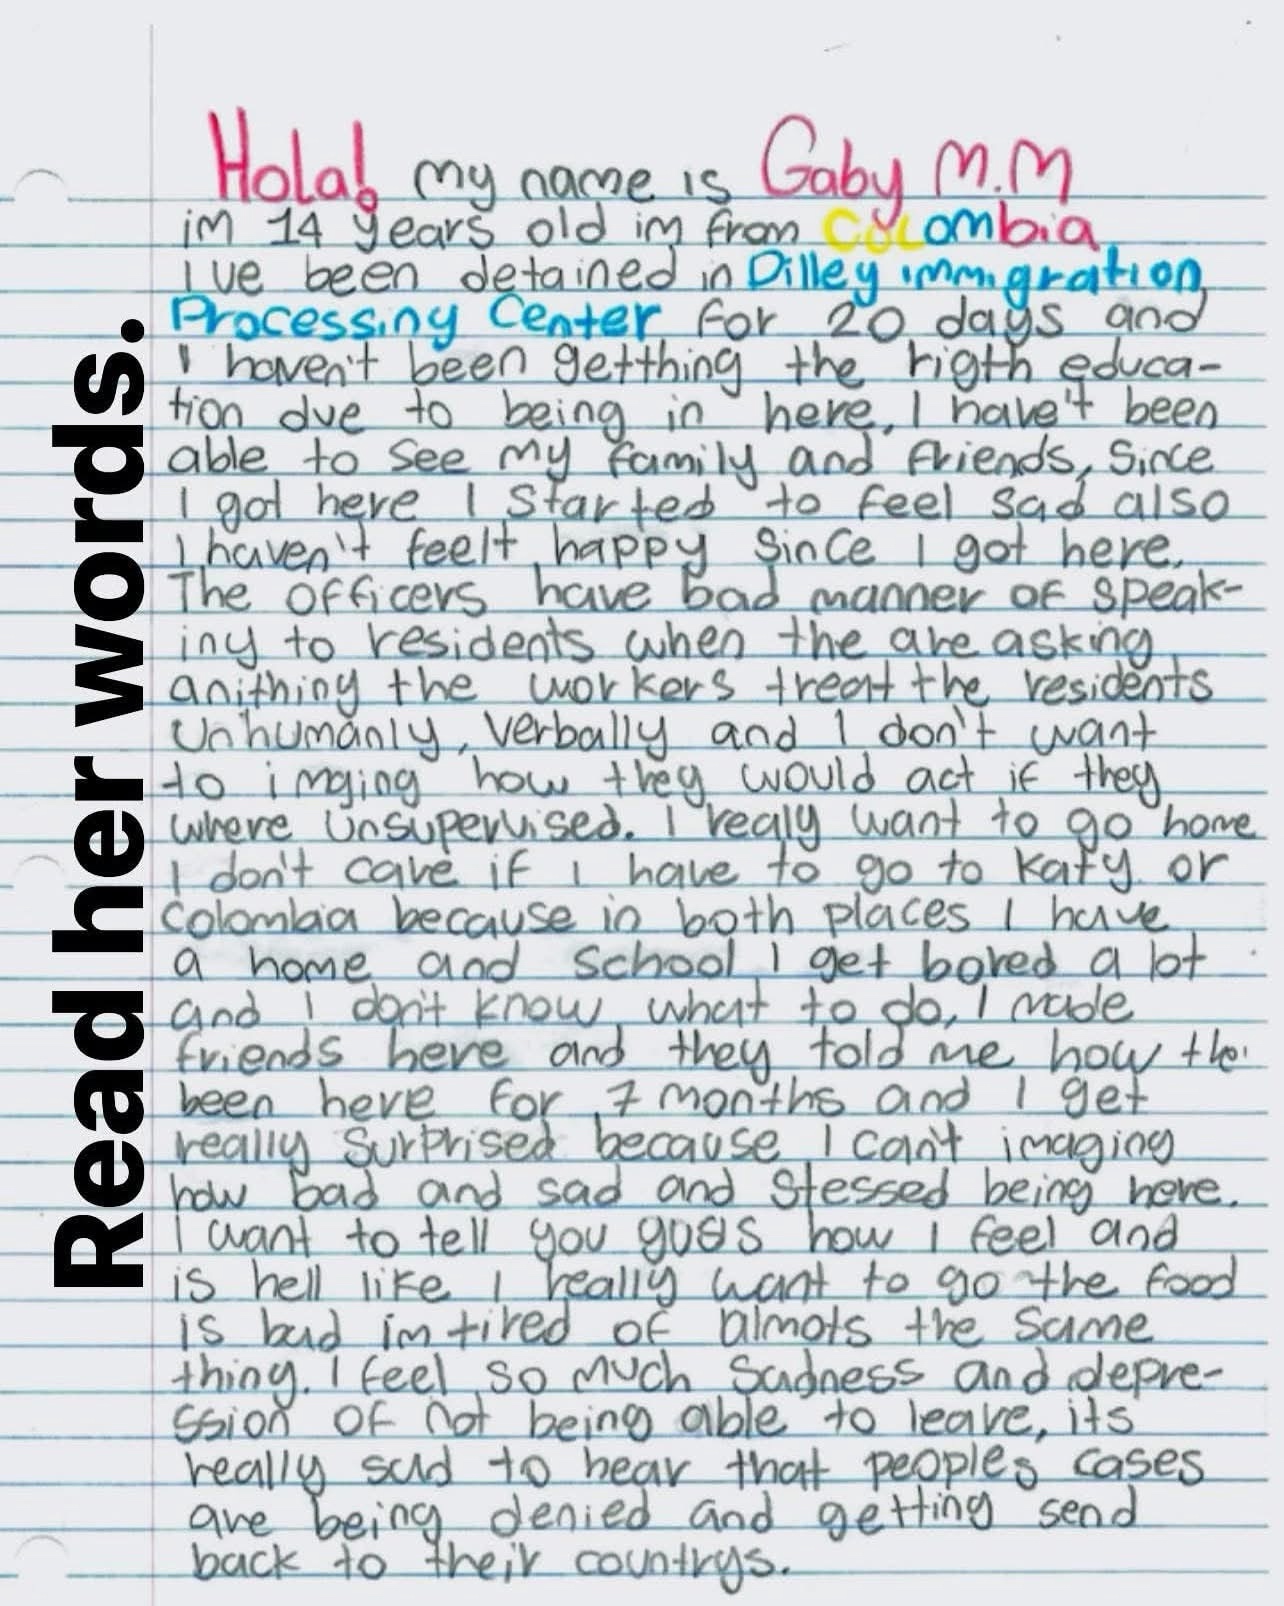 Read her words.
Hola! my name is Gaby M.M
im 14 years old im from Colombia
I've been detained in Dilley immigration
Processing Center for 20 days and
I haven't been getthing the rigth educa-
tion due to being in here, I have't been
able to see my family and friends, Since
I got here I Started to feel sad also
I haven't feelt happy Since I got here.
The officers have bad manner of speak-
iny to residents when the are asking
anithing the workers treat the residents
Unhumanly, verbally and I don't want
to imging how they would act if they
where Unsupervised. I realy want to go home
I don't care if I have to go to Katy or
Colombia because in both places I have
a home and School I get bored a lot
and I don't know what to do, I made
friends here and they told me how the
been here for 7 months and I get
really Surprised because I can't imaging
how bad and sad and Stessed being here.
I want to tell you guys how I feel and
is hell like I really want to go the food
is bad im tired of almots the same
thing. I feel so much Sadness and depre-
ssion of not being able to leave, its
really sad to hear that peoples cases
are being denied and getting send
back to their countrys.